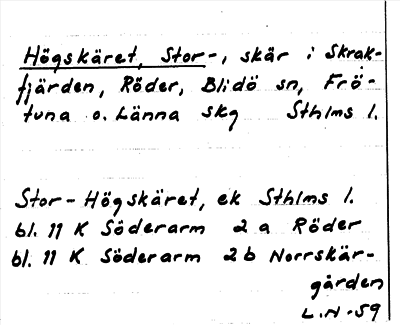 Högskäret, Stor-, skär i Skrak-
fjärden, Röder, Blidö sn, Frö-
tuna o. Länna skg Sthlms l.
Stor-Högskäret, ek Sthlms l.
bl. 11 K Söderarm 2 a Röder
bl. 11 K Söderarm 2 b Norrskär-
gården
L.N-59